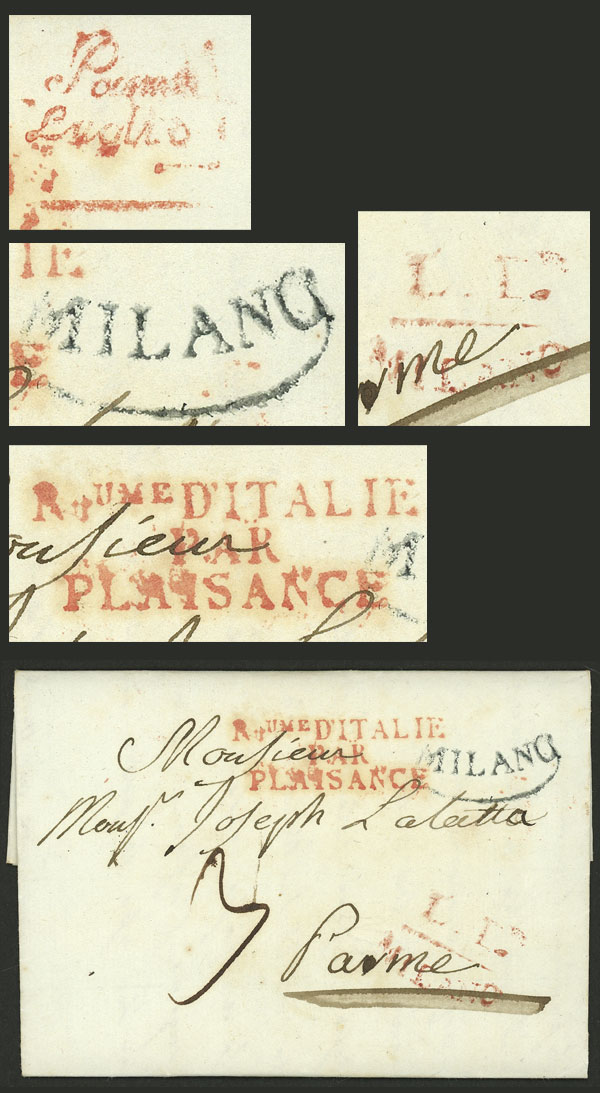 Parma
Luglio
IE
E
MILANO
L. I.
MILANO
rme
R.yUME D'ITALIE
PAR
PLAISANCE
onsieur
M
R.yUME D'ITALIE
PAR
PLAISANCE
MILANO
Monsieur
Monsr. Joseph Latatta
3
L. I.
MILANO
Parme